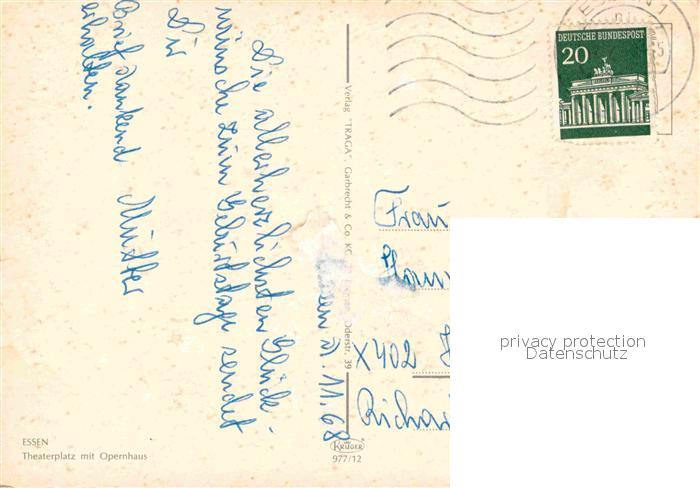 Essen 21.11.68
Die allerherzlichsten Glück-
wünsche zum Geburtstage sendet
Dir
Mutter
Brief dankend
erhalten.
Verlag "TRAGA", Garbrecht & Co. KG, Oderstr. 39
DEUTSCHE BUNDESPOST
20
Frau
X402
Richar
privacy protection
Datenschutz
ESSEN
Theaterplatz mit Opernhaus
KRÜGER
977/12